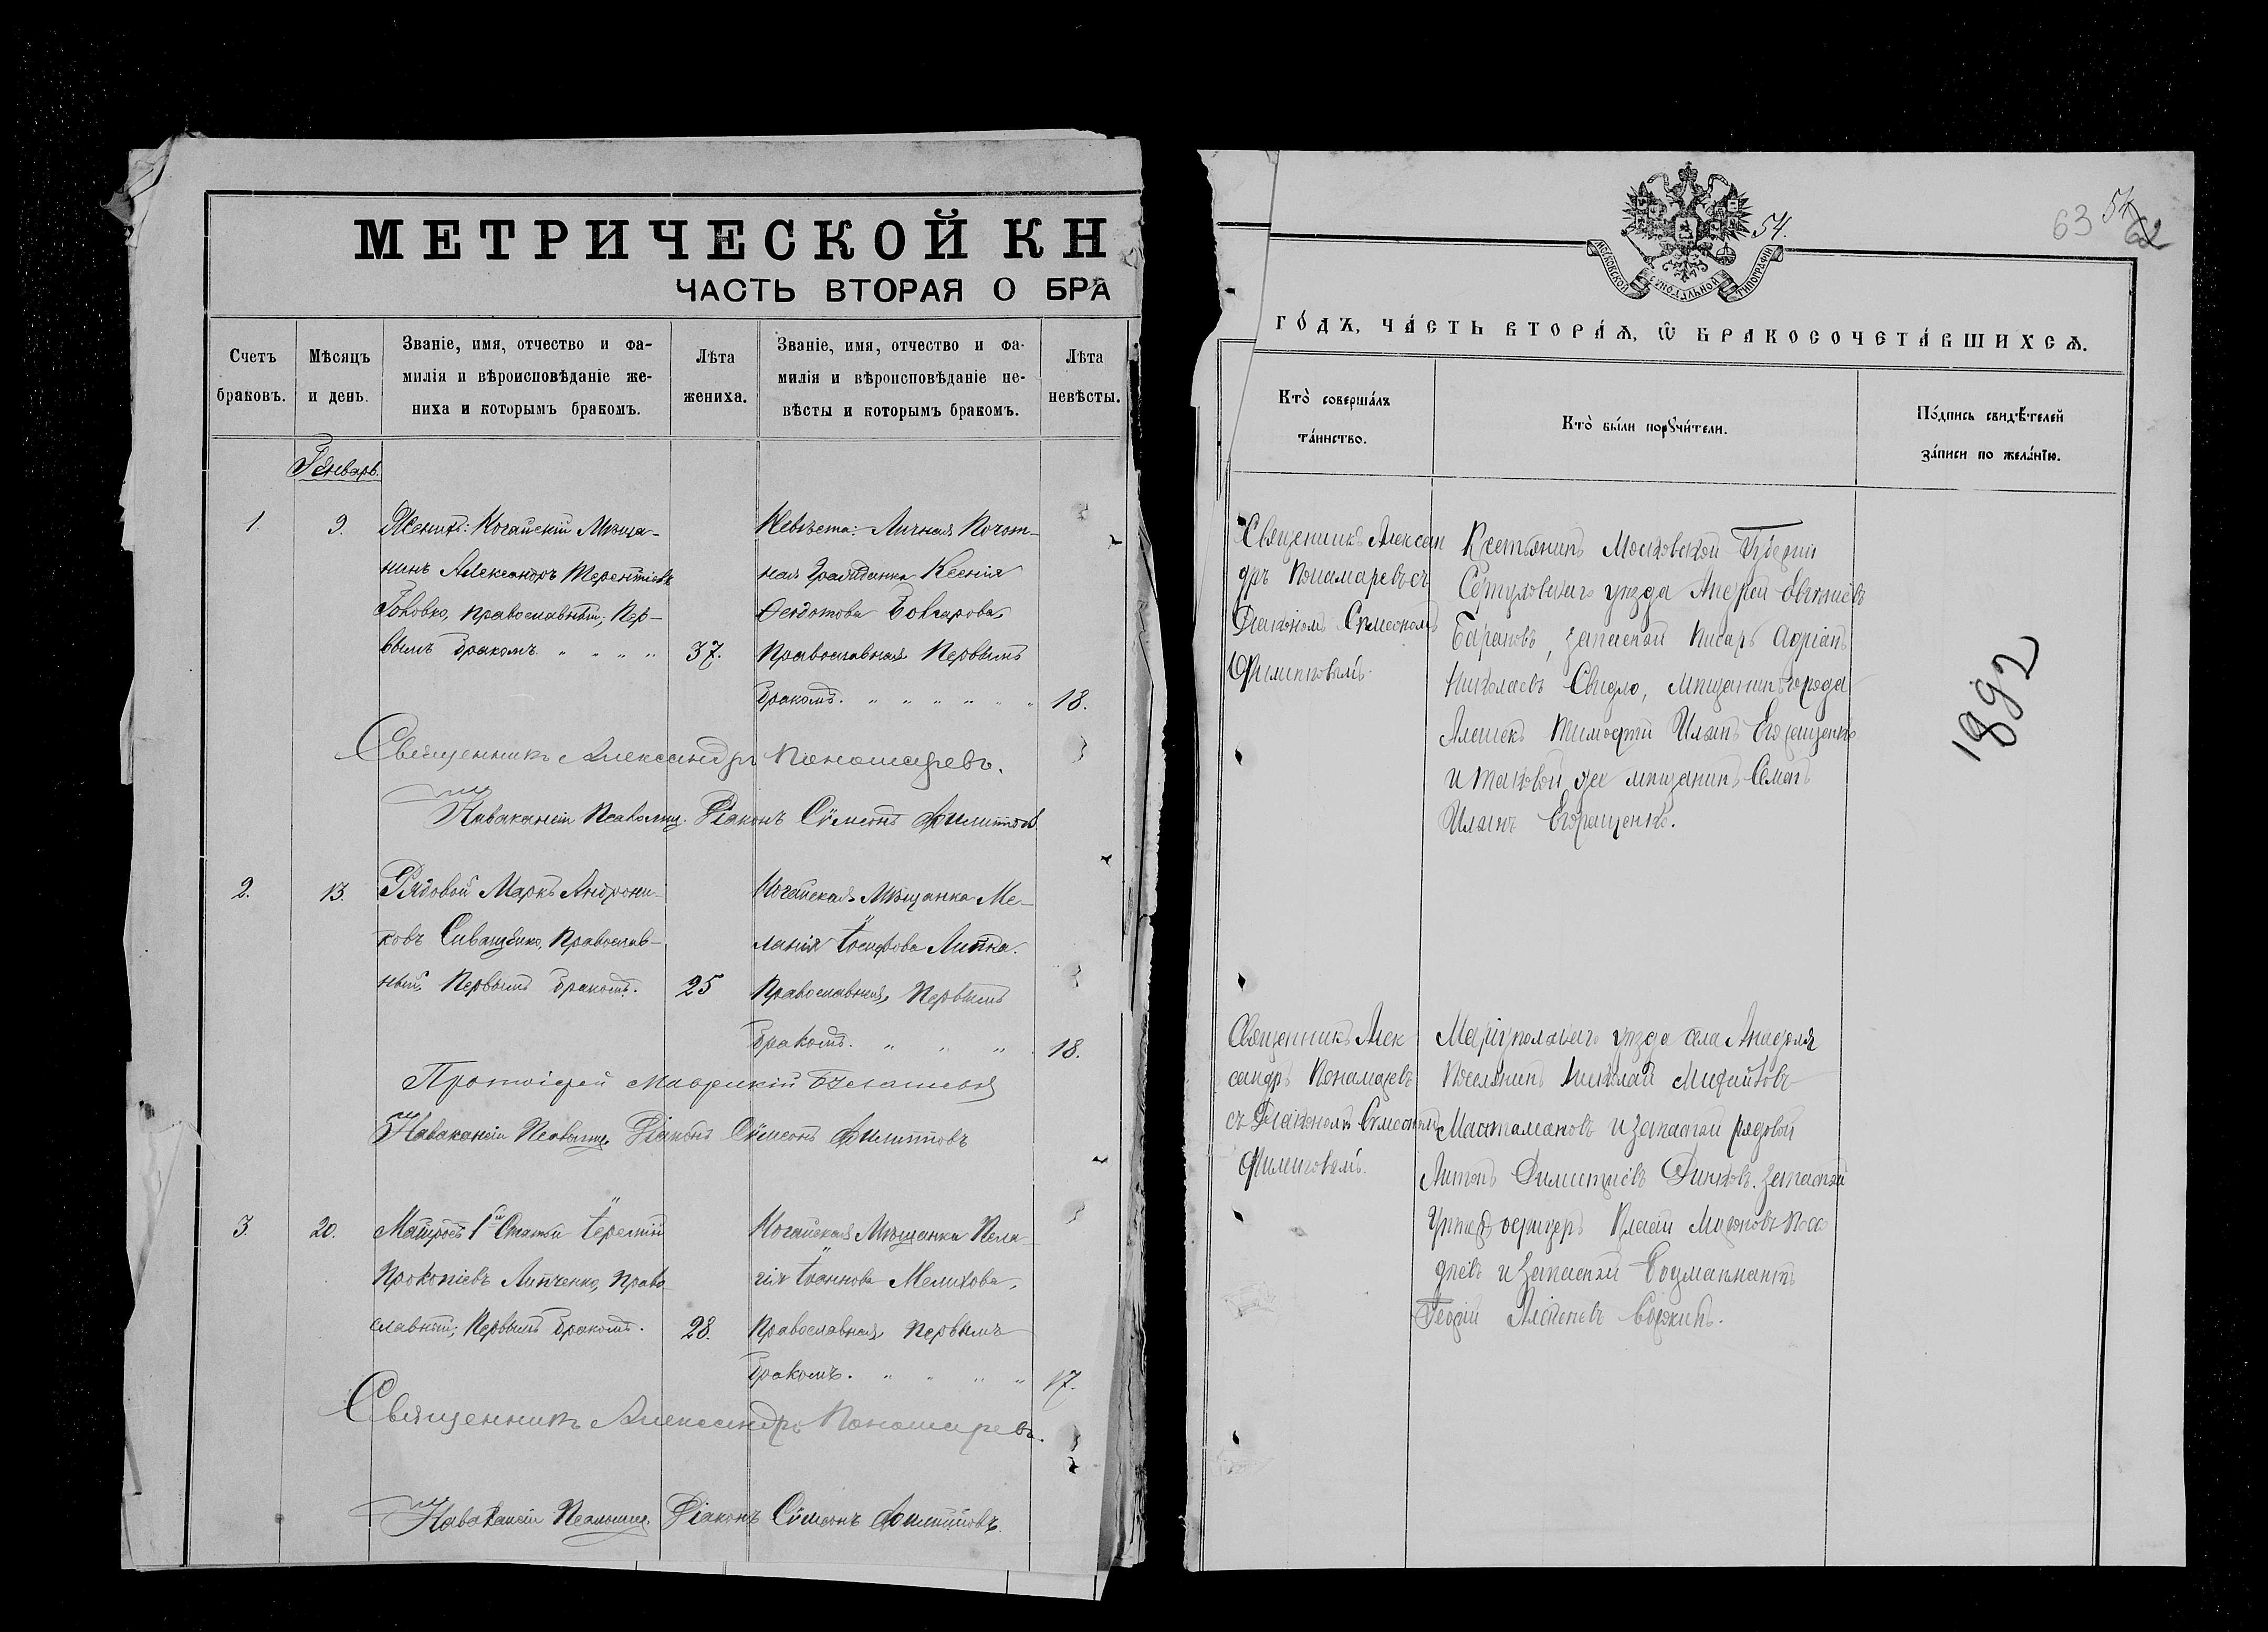 МЕТРИЧЕСКОЙ КН
ЧАСТЬ ВТОРАЯ О БРА
Счетъ браковъ.
Мѣсяцъ и день.
Званіе, имя, отчество и фа-
милія и вѣроисповѣданіе же-
ниха и которымъ бракомъ.
Лѣта жениха.
Званіе, имя, отчество и фа-
милія и вѣроисповѣданіе не-
вѣсты и которымъ бракомъ.
Лѣта невѣсты.
Генварь.
1.
9.
Женихъ: Ногайскій Мѣща-
нинъ Александръ Терентіевъ
православный, Пер-
вымъ бракомъ " " " "
37.
Невѣста: Личная Почот-
ная Гражданка Ксенія
Ѳедотова Бовчарова,
Православная Первымъ
бракомъ. " " " " " "
18.
Священникъ Александръ Пономаревъ.
Діаконъ Сѵмеонъ Филипповъ
2.
13.
Рядовой Маркъ Андрони-
ковъ Сиващенко, Православ-
ный, Первымъ бракомъ.
25
Ногайская Мѣщанка Ме-
ланія Іосифова Липка.
Православная, Первымъ
бракомъ. " " "
18.
Протоіерей
Діаконъ Сѵмеонъ Филипповъ
3.
20.
Матросъ 1й Статьи Іеремій
Прокопіевъ Липченко, Право
славный; Первымъ бракомъ.
28.
Ногайская Мѣщанка Пела-
гія Іоаннова Мелихова,
Православная, Первымъ
бракомъ. " " " "
17.
Священникъ Александръ Пономаревъ.
Діаконъ Сѵмеонъ Филипповъ.
МОСКОВСКОЙ СѴНОДАЛЬНОЙ ТИПОГРАФІИ
54.
63
54
62
ГО́ДЪ, ЧА́СТЬ ВТОРА́Ѧ, Ѡ҆ БРАКОСОЧЕТА́ВШИХСѦ.
Кто̀ соверша́лъ
та́инство.
Кто̀ бы́ли порꙋчи́тели.
По́дпись свидѣ́телей
за́писи по жела́нїю.
Священникъ Алексан
дръ Понамаревъ съ
Діакономъ Сѵмеономъ
Филиповымъ.
Крестьянинъ Московской Губерніи
Серпуховскаго уѣзда Андрей
Барановъ, запасной писарь Адріанъ
Николаевъ Свидло, мѣщанинъ города
Алешекъ Тимофей Ильинъ Егоращенко
и таковой же мѣщанинъ Семенъ
Ильинъ Егоращенко.
1892
Священникъ Алек
сандръ Понамаревъ
съ Діакономъ Сѵмеономъ
Филиповымъ.
Маріупольскаго уѣзда села Анадоля
Поселянинъ Николай
и запасной рядовой
Антонъ Димитріевъ запасной
Унтеръ офицеръ
и запасной Боцманматъ
Георгій